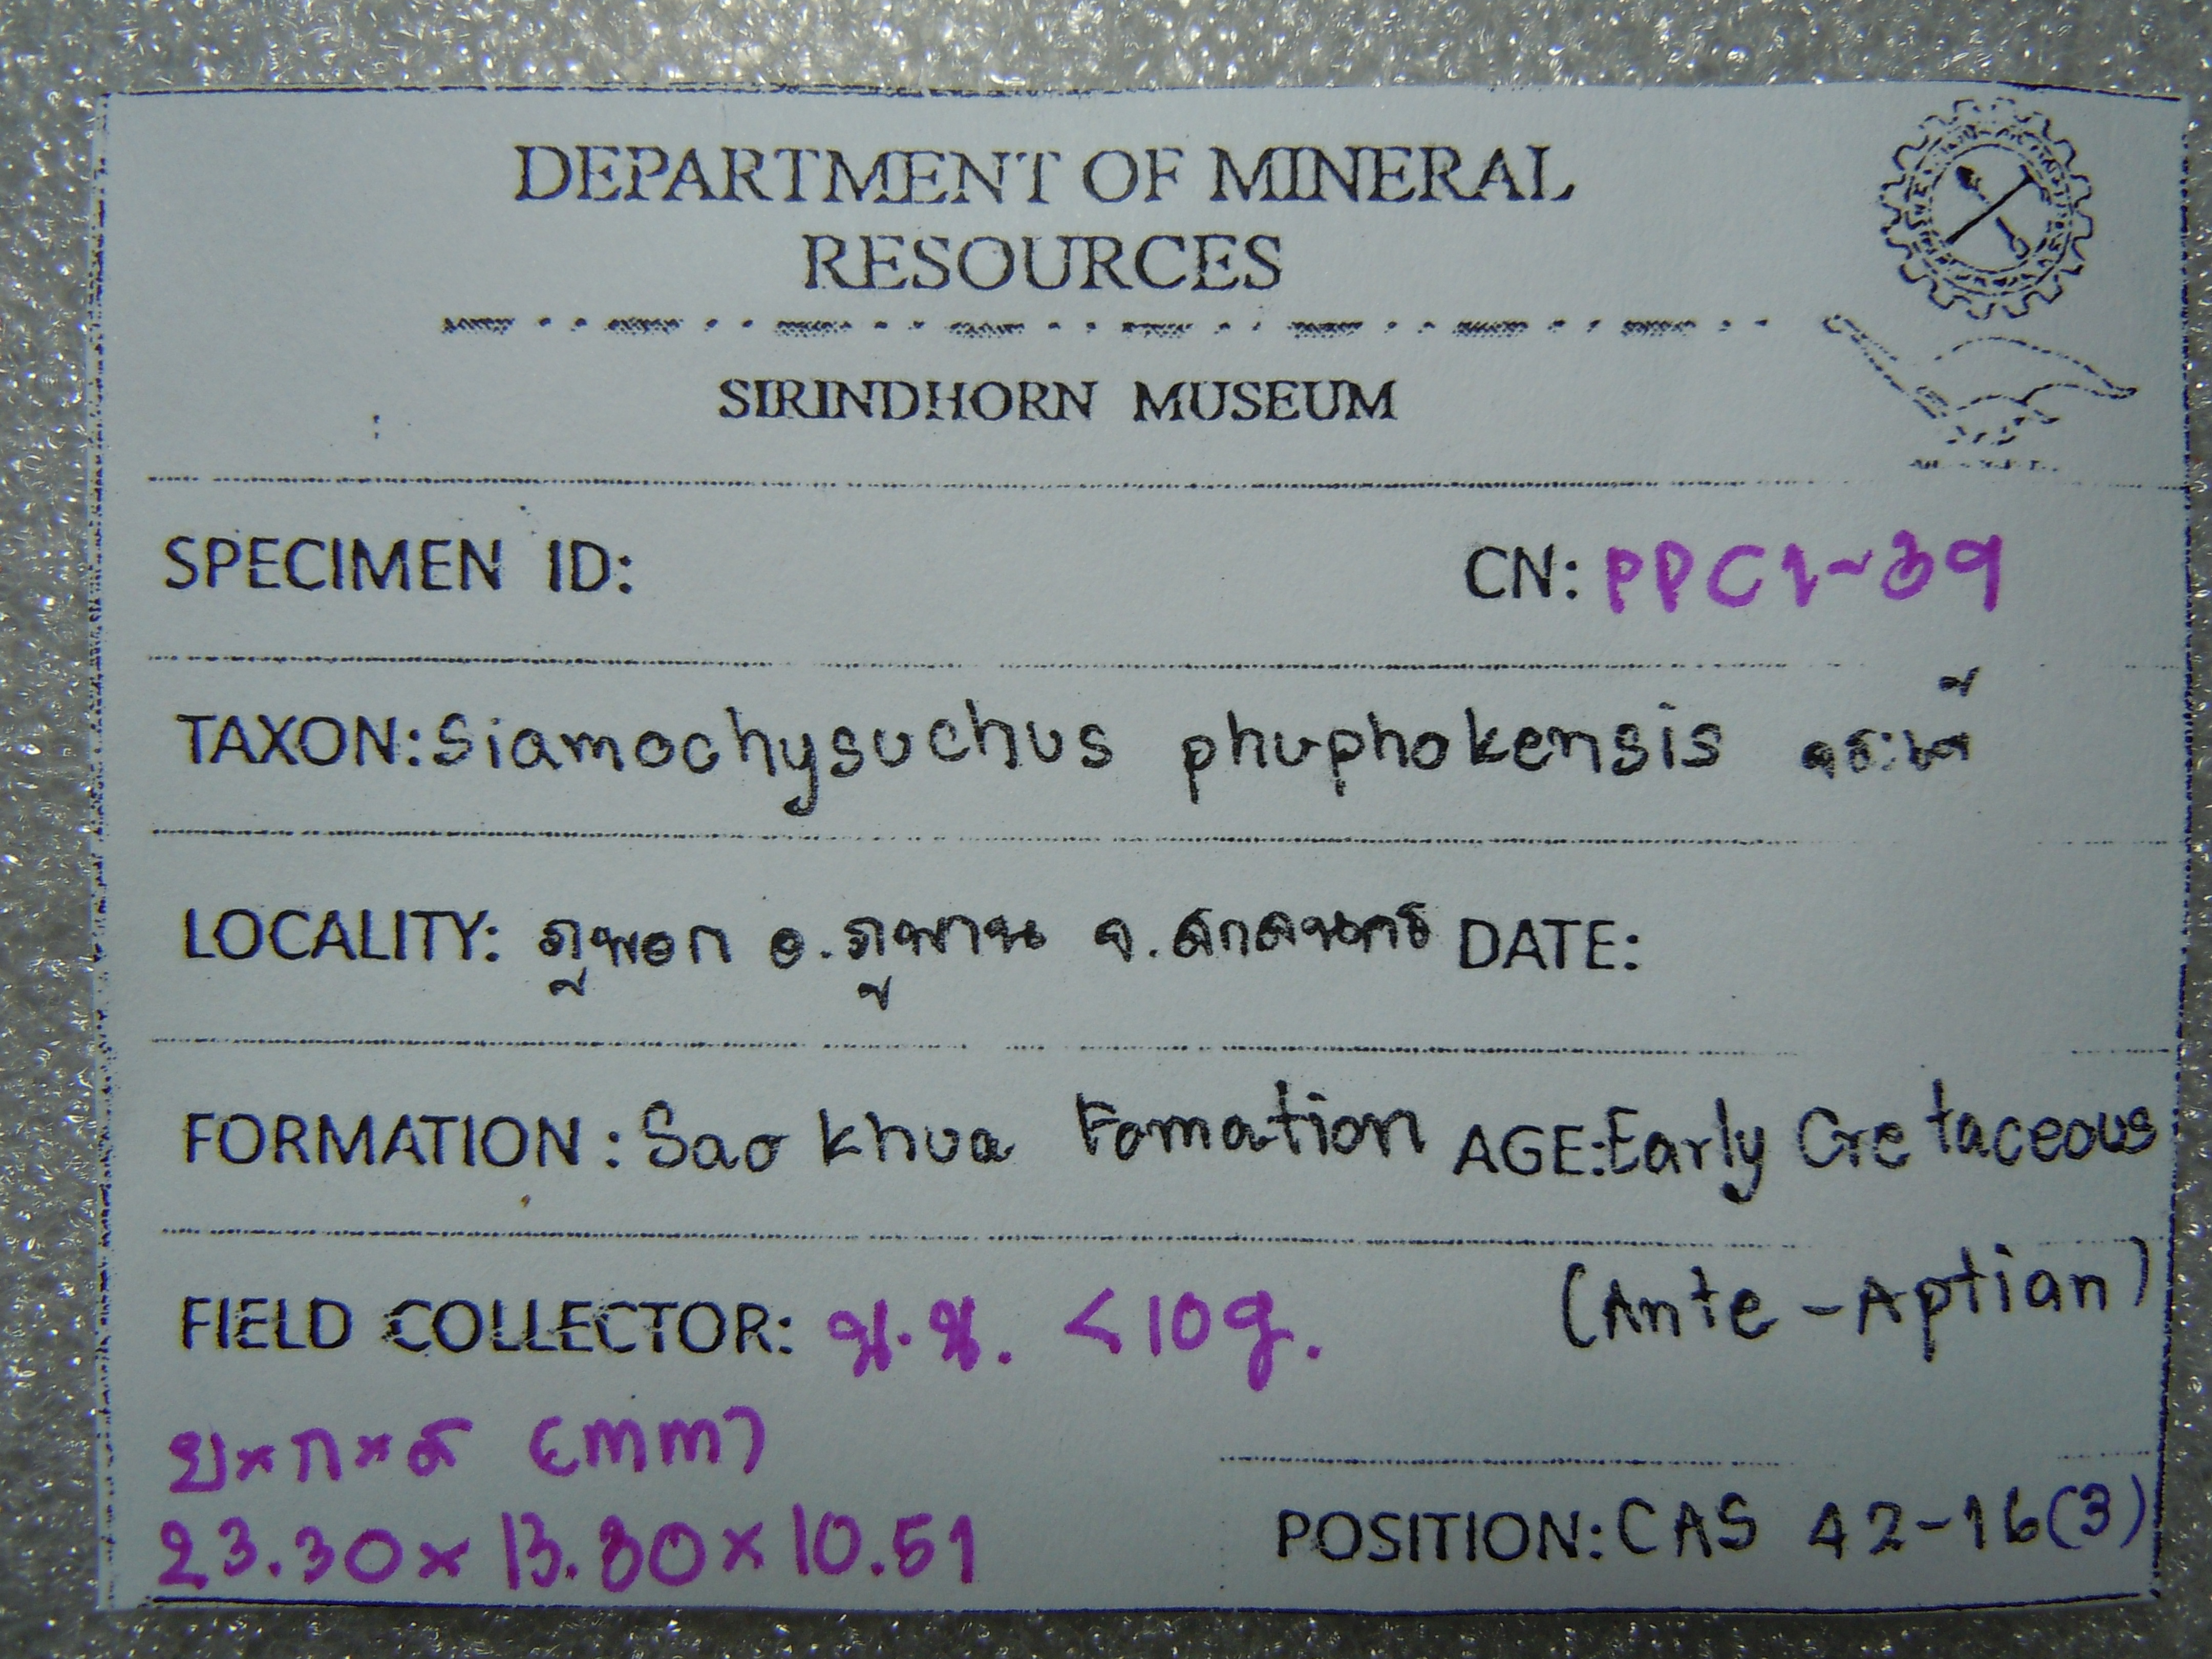 DEPARTMENT OF MINERAL
RESOURCES
SIRINDHORN MUSEUM
SPECIMEN ID: CN: PPC1-39
TAXON: Siamochysuchus phuphokensis จระเข้
LOCALITY: ภูพอก อ.ภูพาน จ.สกลนคร DATE:
FORMATION: Sao Khua Fomation AGE: Early Cretaceous
FIELD COLLECTOR: น.น. <10g. (Ante-Aptian)
ย×ก×ส (mm)
23.30×13.80×10.51 POSITION: CAS 42-16(3)